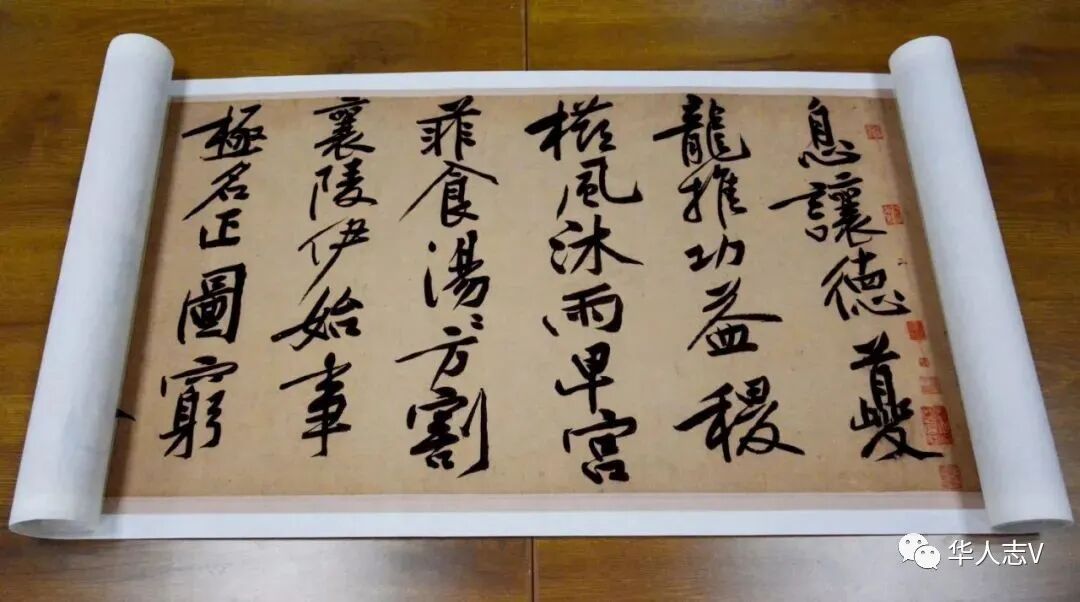 息讓德夔
龍推功益稷
櫛風沐雨卑宮
菲食湯〻方割
襄陵伊始事
極名正圖窮
华人志V